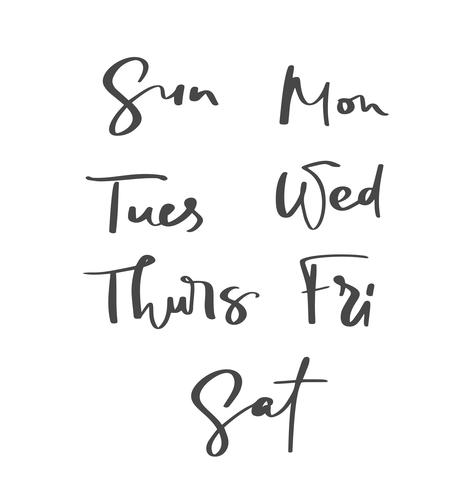 Sun Mon
Tues Wed
Thurs Fri
Sat